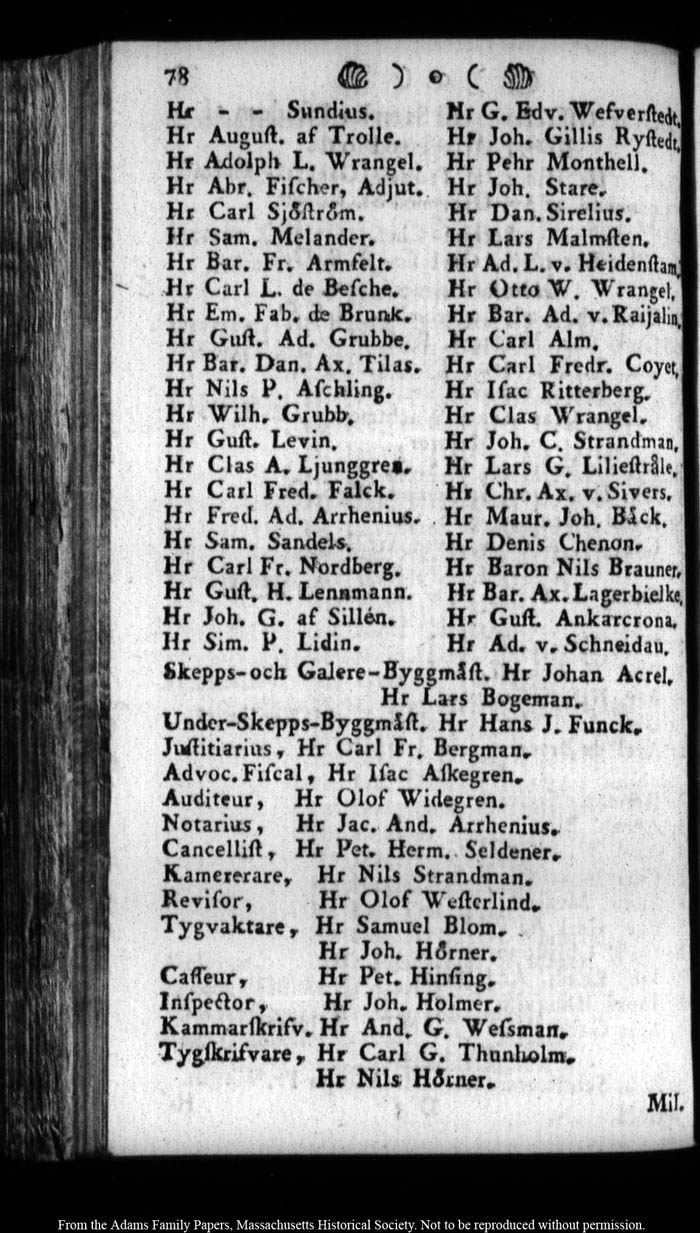 78 ) o (
Hr - - Sundius.
Hr Auguſt. af Trolle.
Hr Adolph L. Wrangel.
Hr Abr. Fiſcher, Adjut.
Hr Carl Sjöſtröm.
Hr Sam. Melander.
Hr Bar. Fr. Armfelt.
Hr Carl L. de Beſche.
Hr Em. Fab. de Brunk.
Hr Guſt. Ad. Grubbe.
Hr Bar. Dan. Ax. Tilas.
Hr Nils P. Aſchling.
Hr Wilh. Grubb.
Hr Guſt. Levin.
Hr Clas A. Ljunggren.
Hr Carl Fred. Falck.
Hr Fred. Ad. Arrhenius.
Hr Sam. Sandels.
Hr Carl Fr. Nordberg.
Hr Guſt. H. Lennmann.
Hr Joh. G. af Sillén.
Hr Sim. P. Lidin.
Hr G. Edv. Wefverſtedt.
Hr Joh. Gillis Ryſtedt.
Hr Pehr Monthell.
Hr Joh. Stare.
Hr Dan. Sirelius.
Hr Lars Malmſten.
Hr Ad. L. v. Heidenſtam.
Hr Otto W. Wrangel.
Hr Bar. Ad. v. Raijalin.
Hr Carl Alm.
Hr Carl Fredr. Coyet.
Hr Iſac Ritterberg.
Hr Clas Wrangel.
Hr Joh. C. Strandman.
Hr Lars G. Lilieſtråle.
Hr Chr. Ax. v. Sivers.
Hr Maur. Joh. Båck.
Hr Denis Chenon.
Hr Baron Nils Brauner.
Hr Bar. Ax. Lagerbielke.
Hr Guſt. Ankarcrona.
Hr Ad. v. Schneidau.
Skepps-och Galere-Byggmåſt. Hr Johan Acrel.
Hr Lars Bogeman.
Under-Skepps-Byggmåſt. Hr Hans J. Funck.
Juſtitiarius, Hr Carl Fr. Bergman.
Advoc. Fiſcal, Hr Iſac Aſkegren.
Auditeur, Hr Olof Widegren.
Notarius, Hr Jac. And. Arrhenius.
Cancelliſt, Hr Pet. Herm. Seldener.
Kamererare, Hr Nils Strandman.
Reviſor, Hr Olof Weſterlind.
Tygvaktare, Hr Samuel Blom.
Hr Joh. Hörner.
Caſſeur, Hr Pet. Hinſing.
Inſpector, Hr Joh. Holmer.
Kammarſkrifv. Hr And. G. Weſsman.
Tygſkrifvare, Hr Carl G. Thunholm.
Hr Nils Hörner.
Mil.
From the Adams Family Papers, Massachusetts Historical Society. Not to be reproduced without permission.